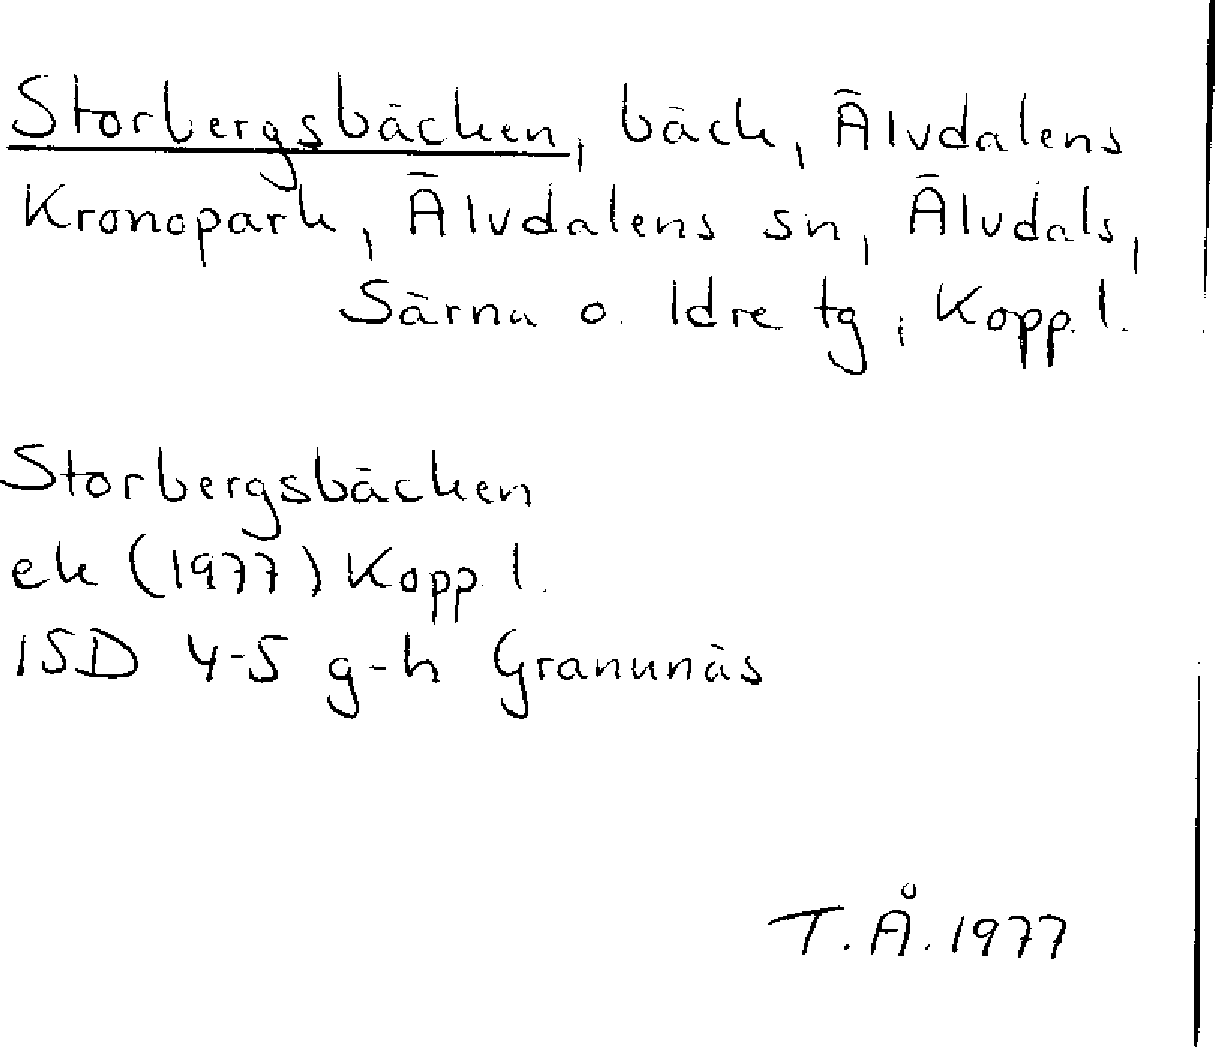 Storbergsbäcken, bäck, Älvdalens
Kronopark, Älvdalens sn, Älvdals,
Särna o. Idre tg, Kopp. l.
Storbergsbäcken
ek (1977) Kopp. l.
15D 4-5 g-h Granunäs
T.Å. 1977